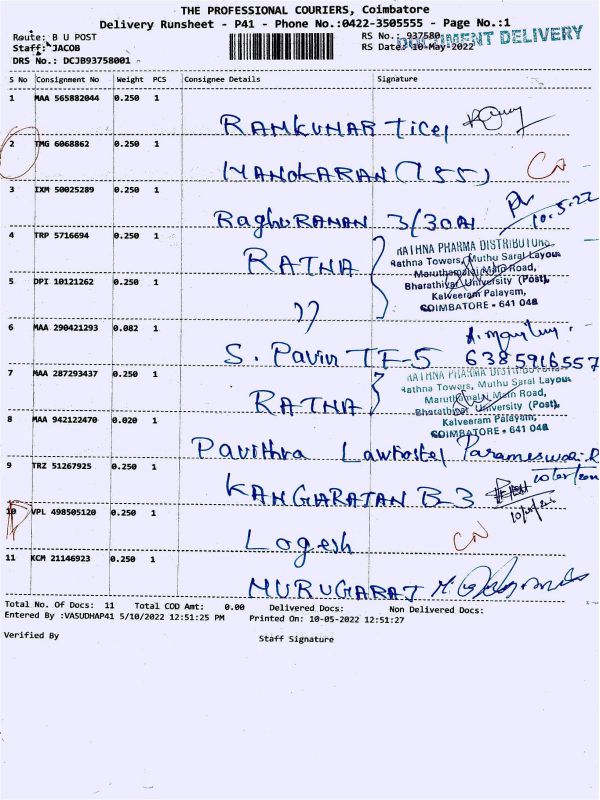 THE PROFESSIONAL COURIERS, Coimbatore
Delivery Runsheet - P41 - Phone No.:0422-3505555 - Page No.:1
Route: B U POST
RS No.: 937580
DOCUMENT DELIVERY
Staff: JACOB
RS Date: 10-May-2022
DRS No.: DCJB93758001
S No Consignment No Weight PCS Consignee Details Signature
1 MAA 565882044 0.250 1
RAMKUMAR Ticel
2 TMG 6068862 0.250 1
MANOKARAN (155) CN
3 IXM 50025289 0.250 1
RaghuRAMAN 3/30A1
10.5.22
4 TRP 5716694 0.250 1
RATNA
RATHNA PHARMA DISTRIBUTORS
Rathna Towers, Muthu Saral Layout
Maruthamalai Main Road,
Bharathiyar University (Post),
Kalveeram Palayam,
COIMBATORE - 641 046
5 DPI 10121262 0.250 1
6 MAA 290421293 0.082 1
S. Pavin TF-5 6385916557
7 MAA 287293437 0.250 1
RATNA
RATHNA PHARMA DISTRIBUTORS
Rathna Towers, Muthu Saral Layout
Maruthamalai Main Road,
Bharathiyar University (Post),
Kalveeram Palayam,
COIMBATORE - 641 046
8 MAA 942122470 0.020 1
Pavithra Lawhostel Parameswari.R
9 TRZ 51267925 0.250 1
KANGARATAN B-3
10 VPL 498505120 0.250 1
Logesh CN
11 KCM 21146923 0.250 1
MURUGARAJ
Total No. Of Docs: 11 Total COD Amt: 0.00 Delivered Docs: Non Delivered Docs:
Entered By :VASUDHAP41 5/10/2022 12:51:25 PM Printed On: 10-05-2022 12:51:27
Verified By Staff Signature